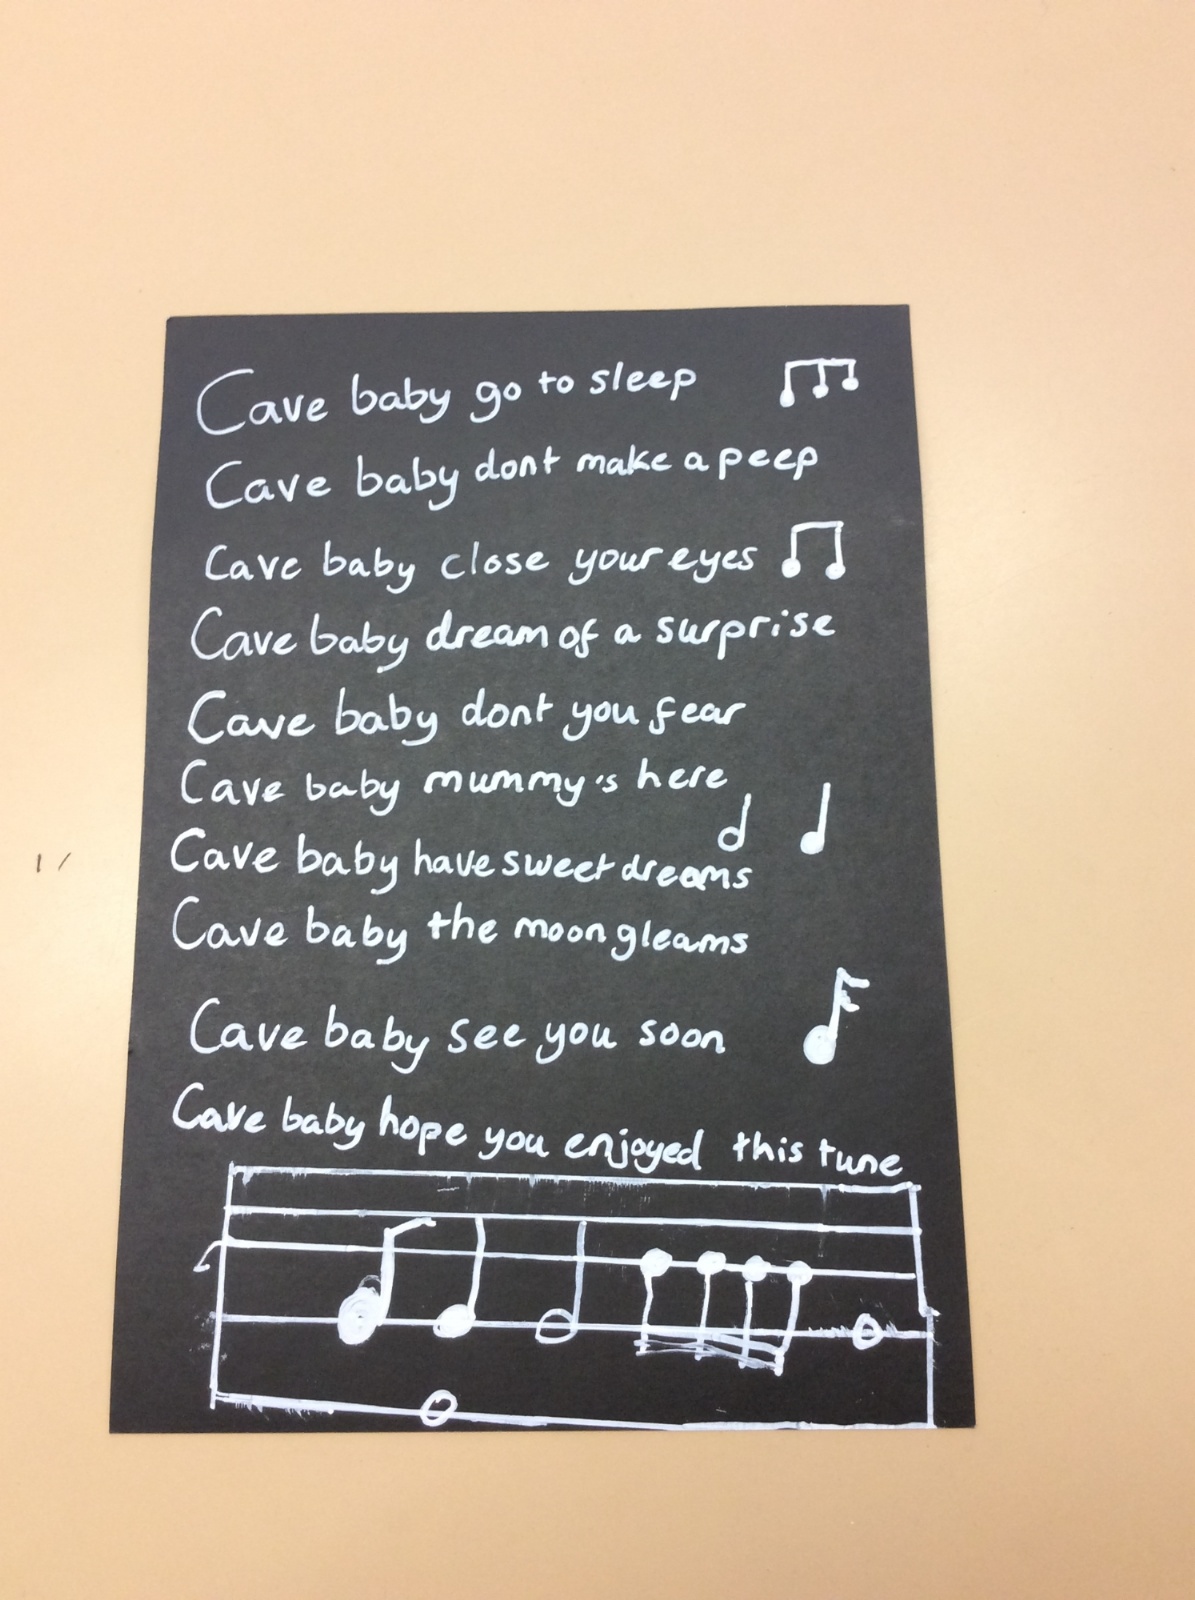 Cave baby go to sleep
Cave baby dont make a peep
Cave baby close your eyes
Cave baby dream of a surprise
Cave baby dont you fear
Cave baby mummy's here
Cave baby have sweet dreams
Cave baby the moon gleams
Cave baby see you soon
Cave baby hope you enjoyed this tune